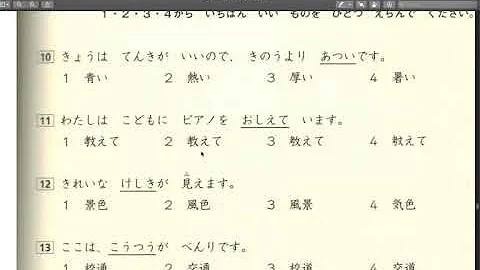 1・2・3・4から いちばん いい ものを ひとつ えらんで ください。
10 きょうは てんきが いいので、きのうより あついです。
1 青い 2 熱い 3 厚い 4 暑い
11 わたしは こどもに ピアノを おしえて います。
1 教えて 2 教えて 3 えて 4 えて
み
12 きれいな けしきが 見えます。
1 景色 2 風色 3 風景 4 気色
13 ここは、こうつうが べんりです。
1 2 3 4